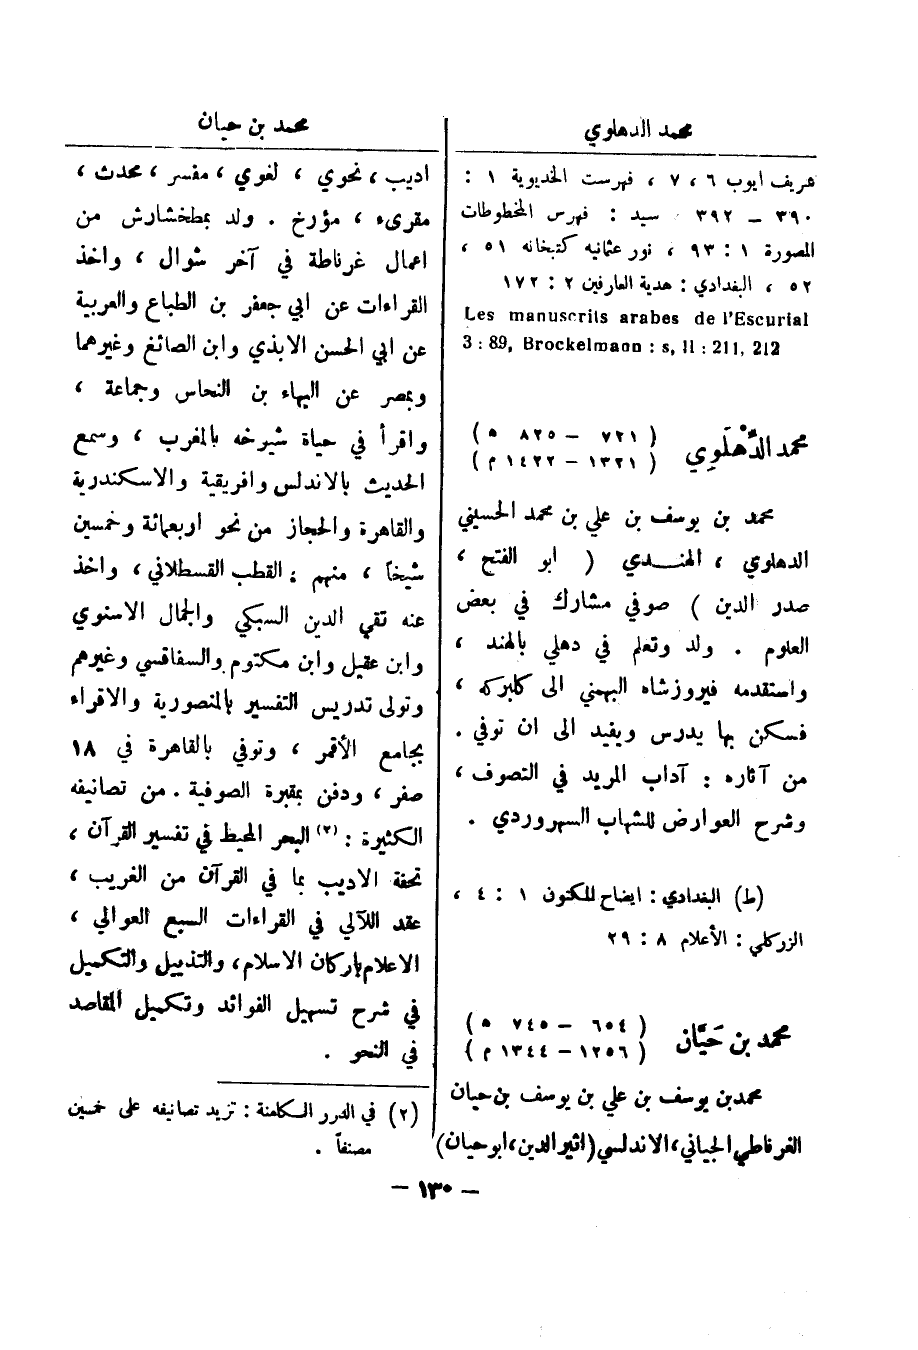 محمد الدهلوي
شريف ايوب ٦ ، ٧ ، فهرست الخديوية ١ :
٣٩٠ – ٣٩٢ سيد : فهرس المخطوطات
المصورة ١ : ٩٣ ، نور عثمانيه كتبخانه ٥١ ،
٥٢ ، البغدادي : هدية العارفين ٢ : ١٧٢
Les manuscrits arabes de l'Escurial
3 : 89, Brockelmann : s, II : 211, 212
محمد الدِّهْلَوِي
( ٧٢١ – ٨٢٥ ه )
( ١٣٢١ – ١٤٢٢ م )
محمد بن يوسف بن علي بن محمد الحسيني
الدهلوي ، الهنـدي ( ابو الفتح ،
صدر الدين ) صوفي مشارك في بعض
العلوم . ولد وتعلم في دهلي بالهند ،
واستقدمه فيروزشاه البهمني الى كلبركه ،
فسكن بها يدرس ويفيد الى ان توفي .
من آثاره : آداب المريد في التصوف ،
وشرح العوارض للشهاب السهروردي .
(ط) البغدادي : ايضاح المكنون ١ : ٤ ،
الزركلي : الأعلام ٨ : ٢٩
محمد بن حَيَّان
( ٦٥٤ – ٧٤٥ ه )
( ١٢٥٦ – ١٣٤٤ م )
محمد بن يوسف بن علي بن يوسف بن حيان
الغرناطي الجياني ، الاندلسي (اثير الدين ، ابو حيان)
محمد بن حيان
اديب ، نحوي ، لغوي ، مفسر ، محدث ،
مقرىء ، مؤرخ . ولد بمطخشارش من
اعمال غرناطة في آخر شوال ، واخذ
القراءات عن ابي جعفر بن الطباع والعربية
عن ابي الحسن الابذي وابن الصائغ وغيرهما
وبمصر عن البهاء بن النحاس وجماعة ،
واقرأ في حياة شيوخه بالمغرب ، وسمع
الحديث بالاندلس وافريقية والاسكندرية
والقاهرة والحجاز من نحو اربعمائة وخمسين
شيخاً ، منهم : القطب القسطلاني ، واخذ
عنه تقي الدين السبكي والجمال الاسنوي
وابن عقيل وابن مكتوم والسفاقسي وغيرهم
وتولى تدريس التفسير بالمنصورية والاقراء
بجامع الأقمر ، وتوفي بالقاهرة في ١٨
صفر ، ودفن بمقبرة الصوفية . من تصانيفه
الكثيرة : (٢) البحر المحيط في تفسير القرآن ،
تحفة الاديب بما في القرآن من الغريب ،
عقد اللآلي في القراءات السبع العوالي ،
الاعلام باركان الاسلام ، والتذييل والتكميل
في شرح تسهيل الفوائد وتكميل المقاصد
في النحو .
(٢) في الدرر الكامنة : تزيد تصانيفه على خمسين
مصنفاً .
– ١٣٠ –